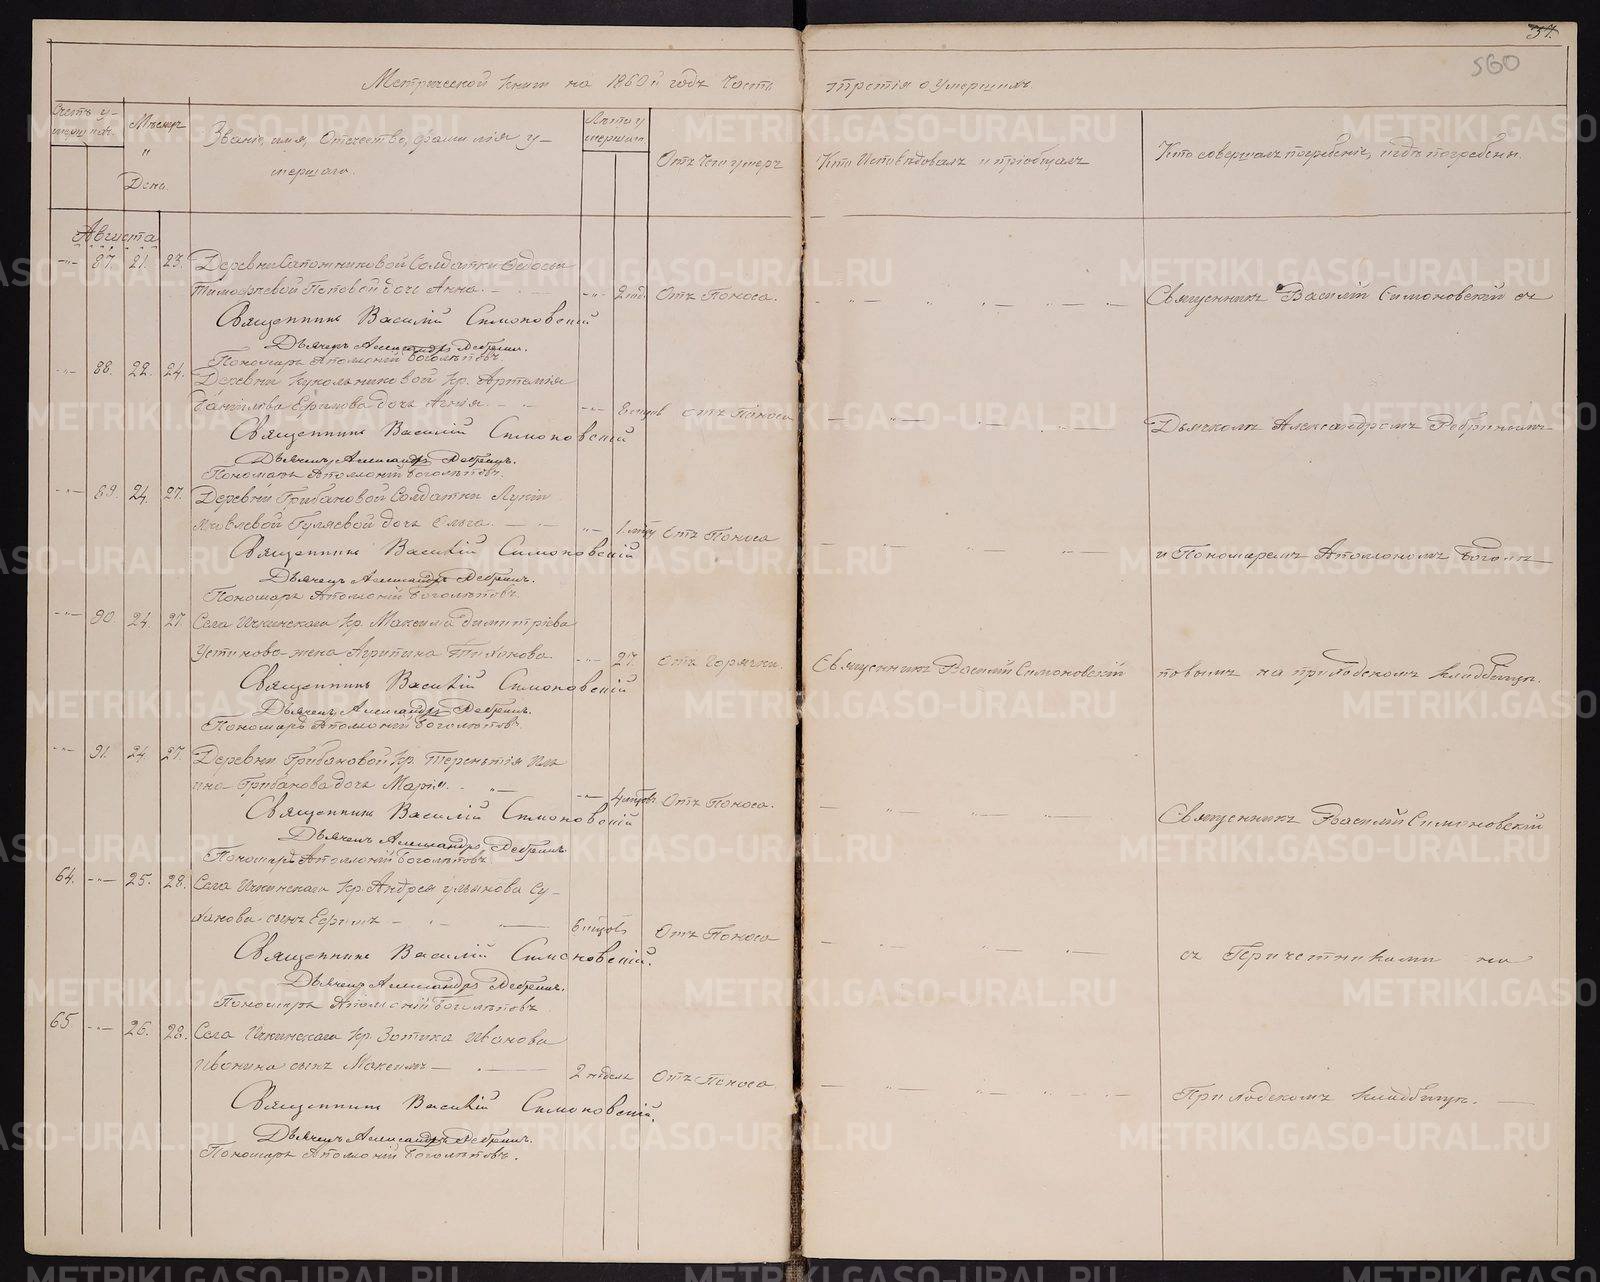 37.
560
Метрической книги на 1860й годъ Часть третія о Умершихъ
Счетъ у-
мершихъ.
Мѣсяцъ
"
День.
Званіе, имя, Отчество, фамилія у-
мершаго.
Лѣта у
мершаго
Отъ Чего умеръ
Кто Исповѣдовалъ и пріобщалъ
Кто совершалъ погребеніе, и гдѣ погребены.
Августа
87. 21. 23. Деревни Сапожниковой Солдатки Ѳедосьи
Тимофѣевой Поповой дочь Анна. 2 нед. Отъ Поноса. Священникъ Василій Симоновскій съ
Священникъ Василій Симоновскій
Дьячекъ Александръ Ребринъ.
Пономарь Аполлоній Боголѣповъ.
88. 22. 24. Деревни Кукольниковой Кр. Артемія
Данилова Ефимова дочь Агнія. отъ Поноса Дьячкомъ Александромъ Ребринымъ
Священникъ Василій Симоновскій
Дьячекъ Александръ Ребринъ.
Пономарь Аполлоній Боголѣповъ.
89. 24. 27. Деревни Грибановой Солдатки Лукіи
Яковлевой Гуляевой дочь Ольга. Отъ Поноса
Священникъ Василій Симоновскій и Пономаремъ Аполлономъ Боголѣ
Дьячекъ Александръ Ребринъ.
Пономарь Аполлоній Боголѣповъ.
90. 24. 27. Села Ичкинскаго Кр. Максима Димитріева
Устинова жена Агрипина Тихонова 27. Отъ Горячки. Священникъ Василій Симоновскій повымъ на приходскомъ кладбищѣ.
Священникъ Василій Симоновскій
Дьячекъ Александръ Ребринъ.
Пономарь Аполлоній Боголѣповъ.
91. 24. 27. Деревни Грибановой Кр. Терентія Иль
ина Грибанова дочь Марія. 4 мцовъ Отъ Поноса.
Священникъ Василій Симоновскій Священникъ Василій Симоновскій
Дьячекъ Александръ Ребринъ.
Пономарь Аполлоній Боголѣповъ
64. 25. 28. Села Ичкинскаго Кр. Андрея Ульянова Су-
ханова сынъ Ефимъ 6 мцовъ Отъ Поноса
Священникъ Василій Симоновскій. съ Причетниками на
Дьячекъ Александръ Ребринъ.
Пономарь Аполлоній Боголѣповъ
65. 26. 28. Села Ичкинскаго Кр. Зотика Иванова
Ивонина сынъ Максимъ 2 недѣль Отъ Поноса
Священникъ Василій Симоновскій. Приходскомъ кладбищѣ.
Дьячекъ Александръ Ребринъ.
Пономарь Аполлоній Боголѣповъ.
METRIKI.GASO-URAL.RU